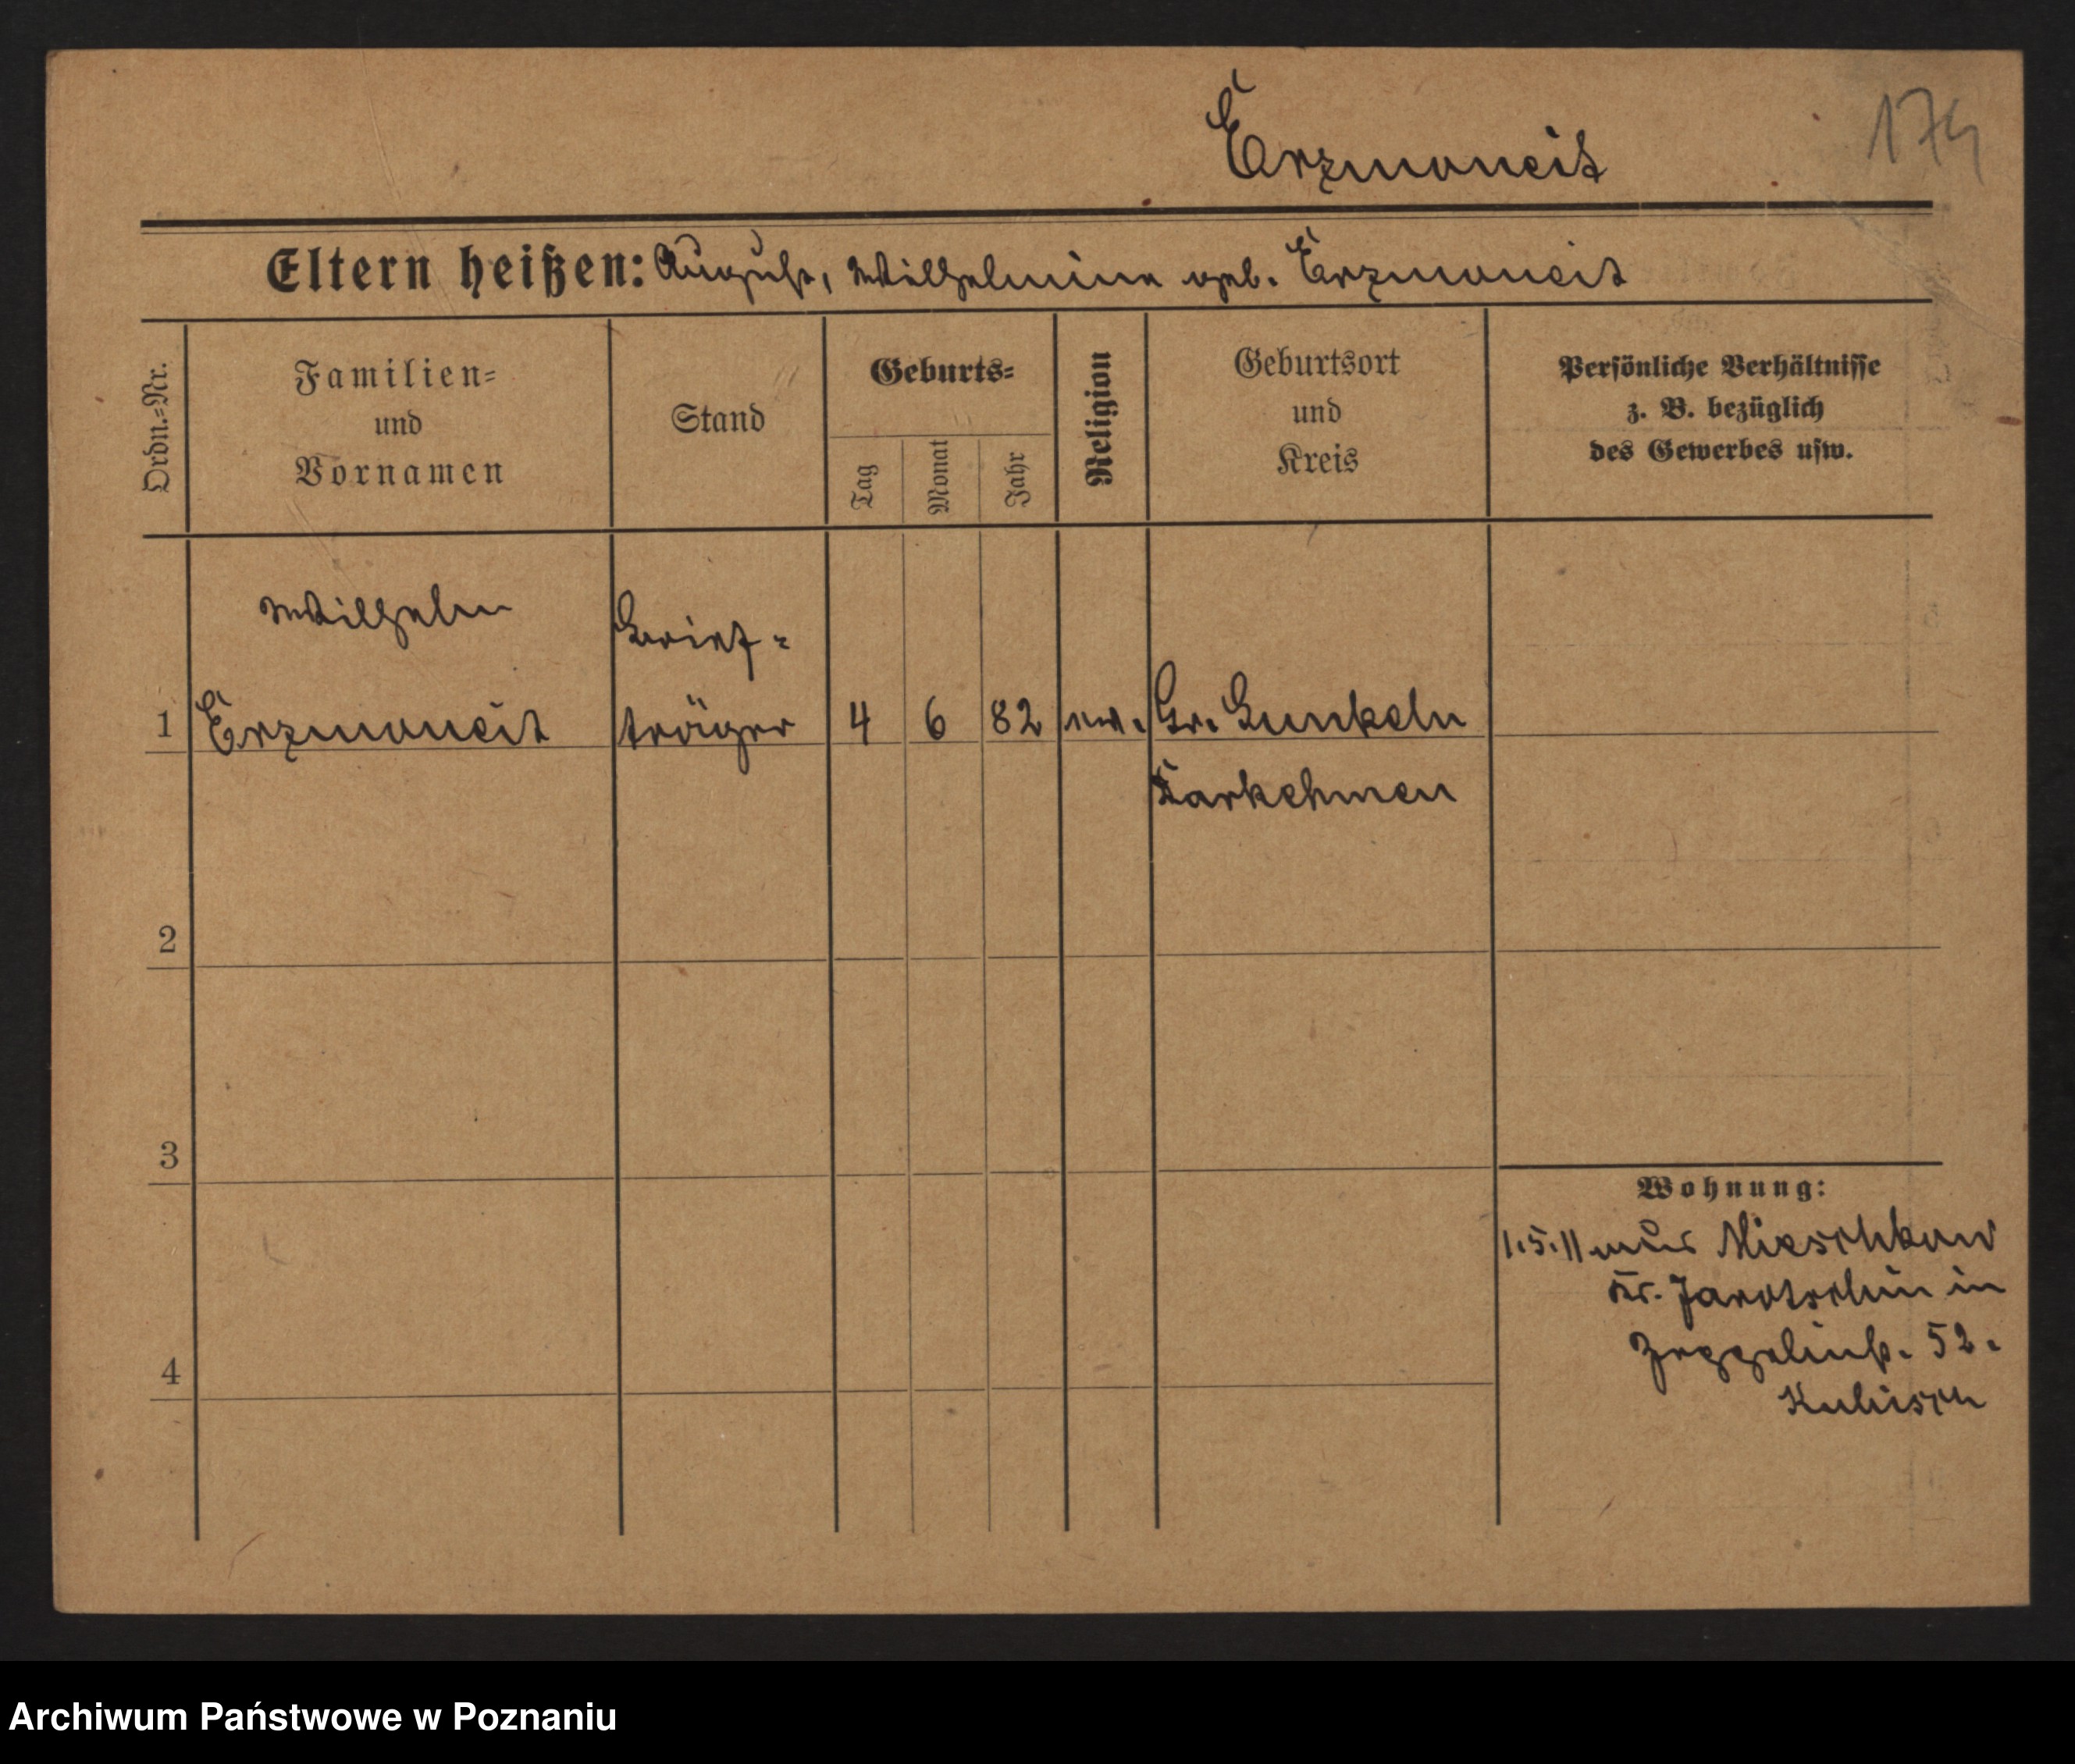 174
Erzmoneit
Eltern heißen: August, Wilhelmine geb. Erzmoneit
Ordn.=Nr.
Familien=
und
Vornamen
Stand
Geburts=
Tag
Monat
Jahr
Religion
Geburtsort
und
Kreis
Persönliche Verhältnisse
z. B. bezüglich
des Gewerbes usw.
Wilhelm Brief=
1 Erzmoneit träger 4 6 82 ev. Gr. Gunkeln
Darkehmen
2
3
4
Wohnung:
1.5.11 aus Mieschkow
Kr. Jarotschin in
52.
Kubisch
Archiwum Państwowe w Poznaniu